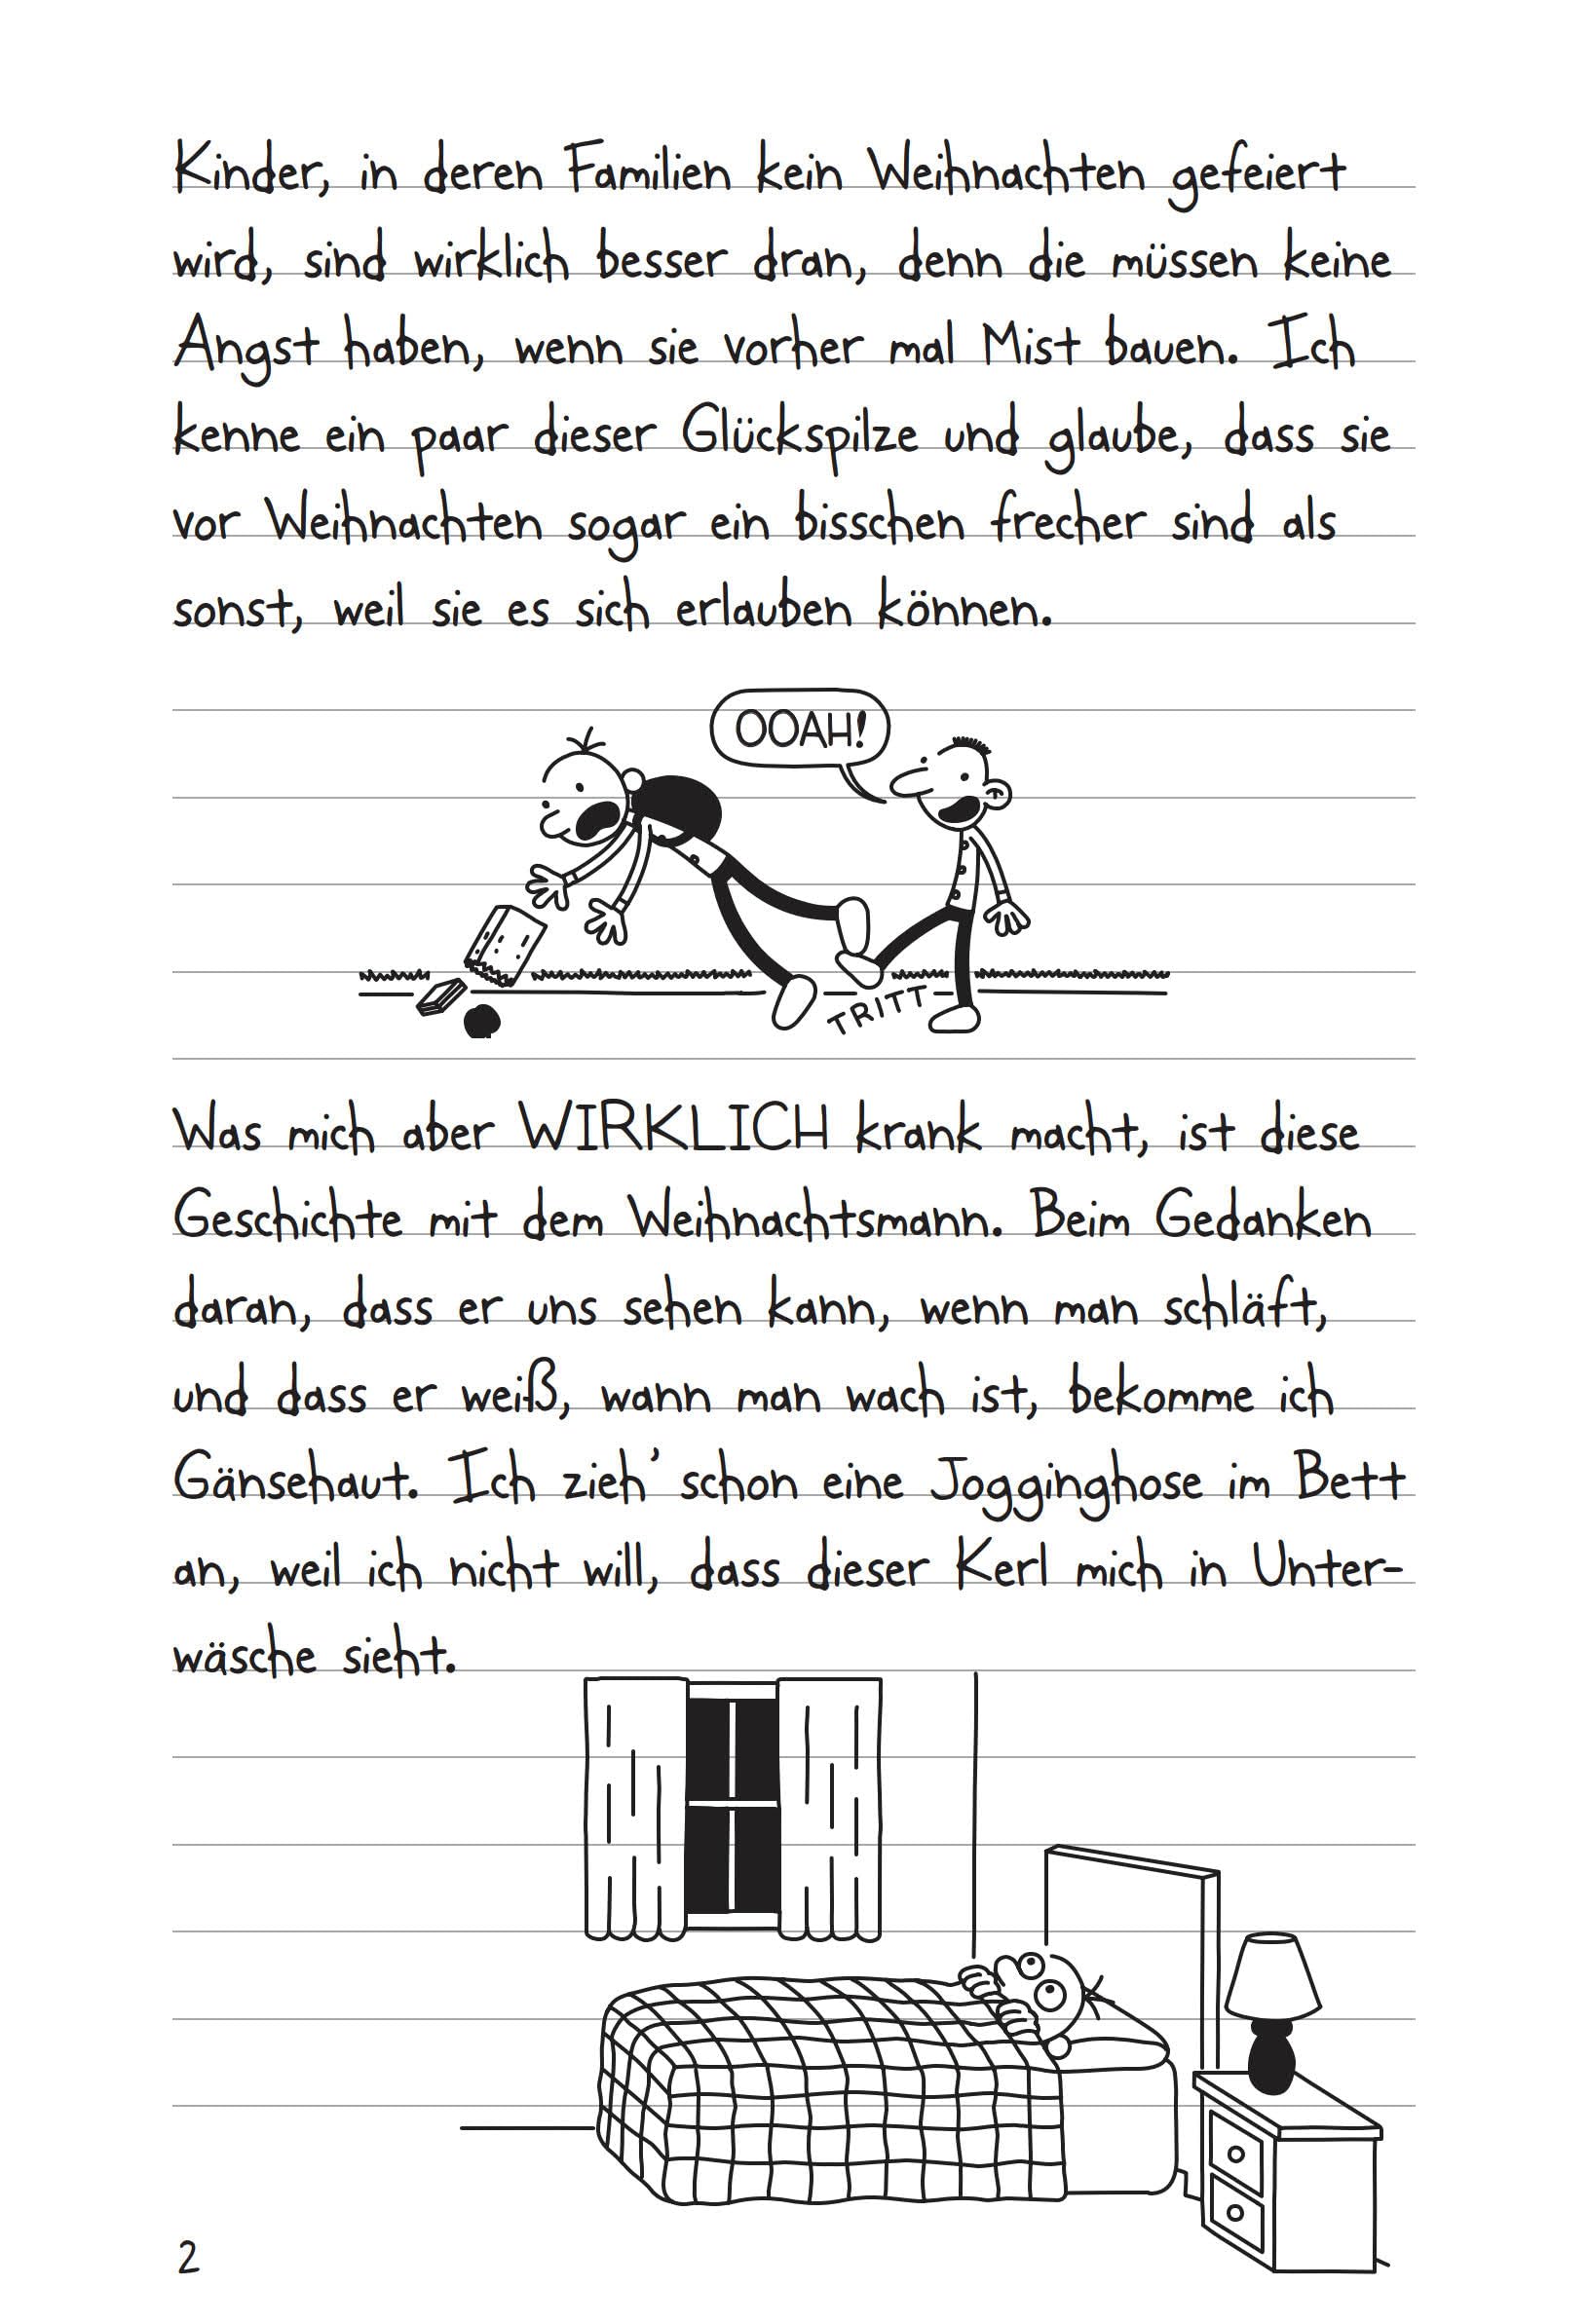 Kinder, in deren Familien kein Weihnachten gefeiert
wird, sind wirklich besser dran, denn die müssen keine
Angst haben, wenn sie vorher mal Mist bauen. Ich
kenne ein paar dieser Glückspilze und glaube, dass sie
vor Weihnachten sogar ein bisschen frecher sind als
sonst, weil sie es sich erlauben können.
OOAH!
TRITT
Was mich aber WIRKLICH krank macht, ist diese
Geschichte mit dem Weihnachtsmann. Beim Gedanken
daran, dass er uns sehen kann, wenn man schläft,
und dass er weiß, wann man wach ist, bekomme ich
Gänsehaut. Ich zieh’ schon eine Jogginghose im Bett
an, weil ich nicht will, dass dieser Kerl mich in Unter-
wäsche sieht.
2